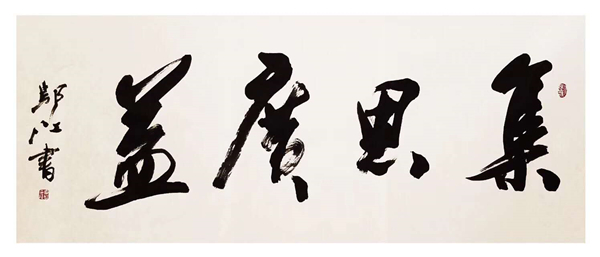 集思廣益
江書